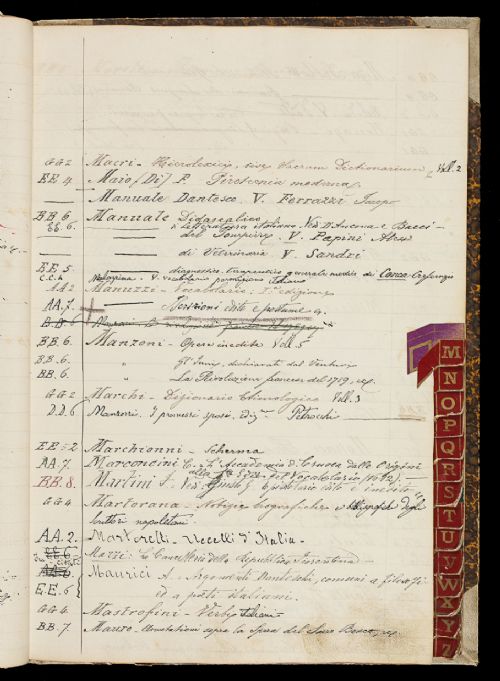 GG 2 Macri - Hierolexicon, sive Sacrum Dictionarium, Voll. 2
EE 4. Maio (Di) P. Pirotecnia moderna
— Manuale Dantesco. V. Ferrazzi Jacopo
BB. 6. Manuale Didascalico
6. — Letteratura italiana Ved. D'Ancona e Bacci -
— del V. Papini
— di Veterinaria V. Sandri
EE 5. — diagnostico generale medic. di
C.C. 4 V. vocabolario italiano
AA 2 Manuzzi - Vocabolario. edizione
AA. 7. — Iscrizioni edite e postume
B.B. 6
BB. 6. Manzoni - Opere inedite Voll. 5
BB. 6. " Gl'Inni, dichiarati dal Venturi
BB. 6. " La Rivoluzione francese del 1789, ec.
GG 2 Marchi - Dizionario Etimologico Voll. 2
D.D. 6 Manzoni. I promessi sposi, ediz. Petrocchi
EE = 2 Marchionni - Scherma
AA. 7. Marconcini C. - L'Accademia d. Crusca dalle Origini
alla Ediz. del Vocabolario (1612) -
BB. 8. Martini F. - Ved. Giusti G. Epistolario edito e inedito
GG 4 Martorana - Notizie biografiche e bibliografiche degli
scrittori napoletani -
AA. 2. Martorelli - Uccelli d'Italia -
6 Marzi: La Cancelleria della Repubblica Fiorentina -
AA 6. Maurici A. - Argomenti Danteschi, comuni a filosofi
E.E. 6 ed a poeti italiani.
GG 4. Mastrofini - Verbi Italiani
BB. 7. Mauro - Annotazioni sopra la Spera del Sacro Bosco, ec.
M
N
O
P
Q
R
S
T
U
V
W
X
Y
Z